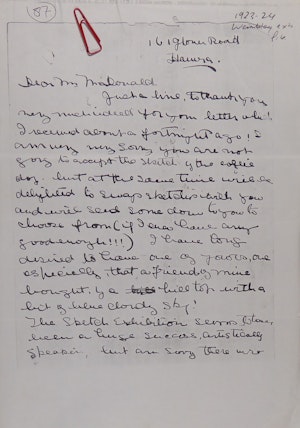 (87)
1923-24
p. 6
16 Iona Road
Dear Mr McDonald
Just a line, to thank you
very much indeed for your letter which
I received about a fortnight ago! I
am very very sorry you are not
going to accept the sketch of the collie
dog - but at the same time will be
delighted to swap sketches with you
and will send some down to you to
choose from (if I can have any
good enough!!!) I have long
desired to have one of yours, one
especially, that a friend of mine
bought, of a hill top with a
bit of blue cloudy sky!
The Sketch Exhibition seems to have
been a huge success, artistically
speaking, but am sorry there was